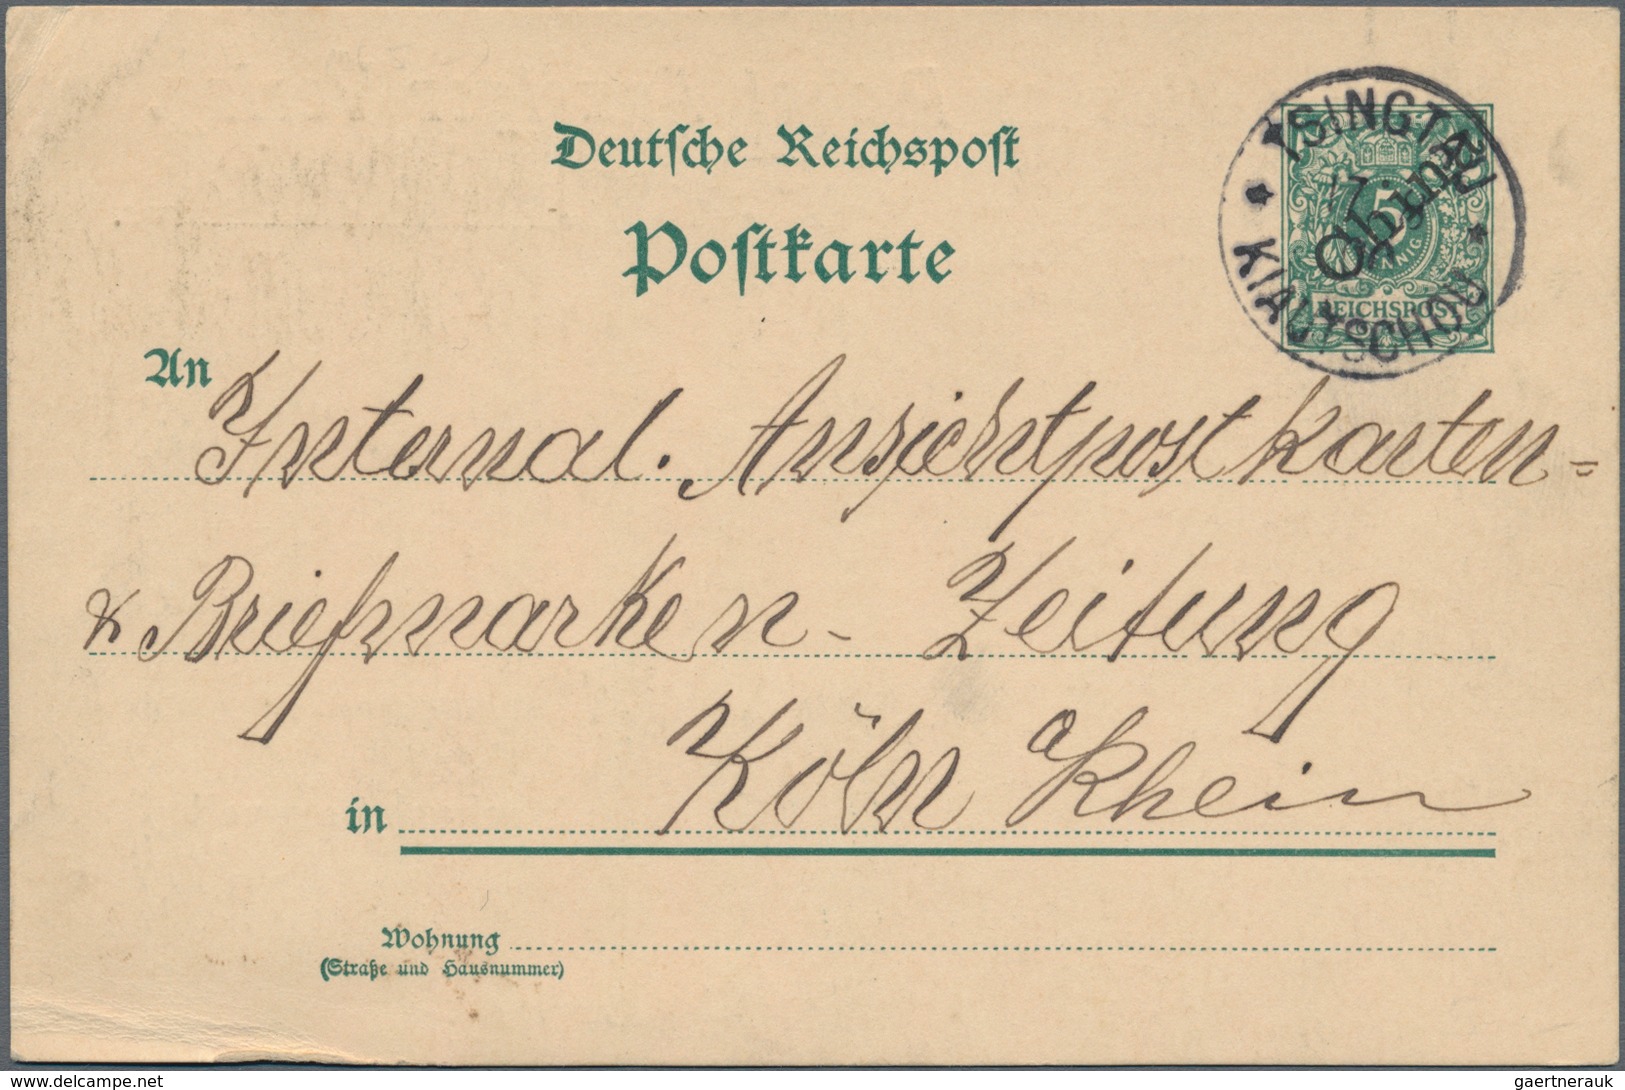 Deutsche Reichspost
Postkarte
TSINGTAU
China
5
PFENNIG
REICHSPOST
KIAUTSCHOU
An Internal. Ansichtpostkarten=
& Briefmarken-Zeitung
in Köln a Rhein
Wohnung
(Straße und Hausnummer)
www.delcampe.net
gaertnerauk